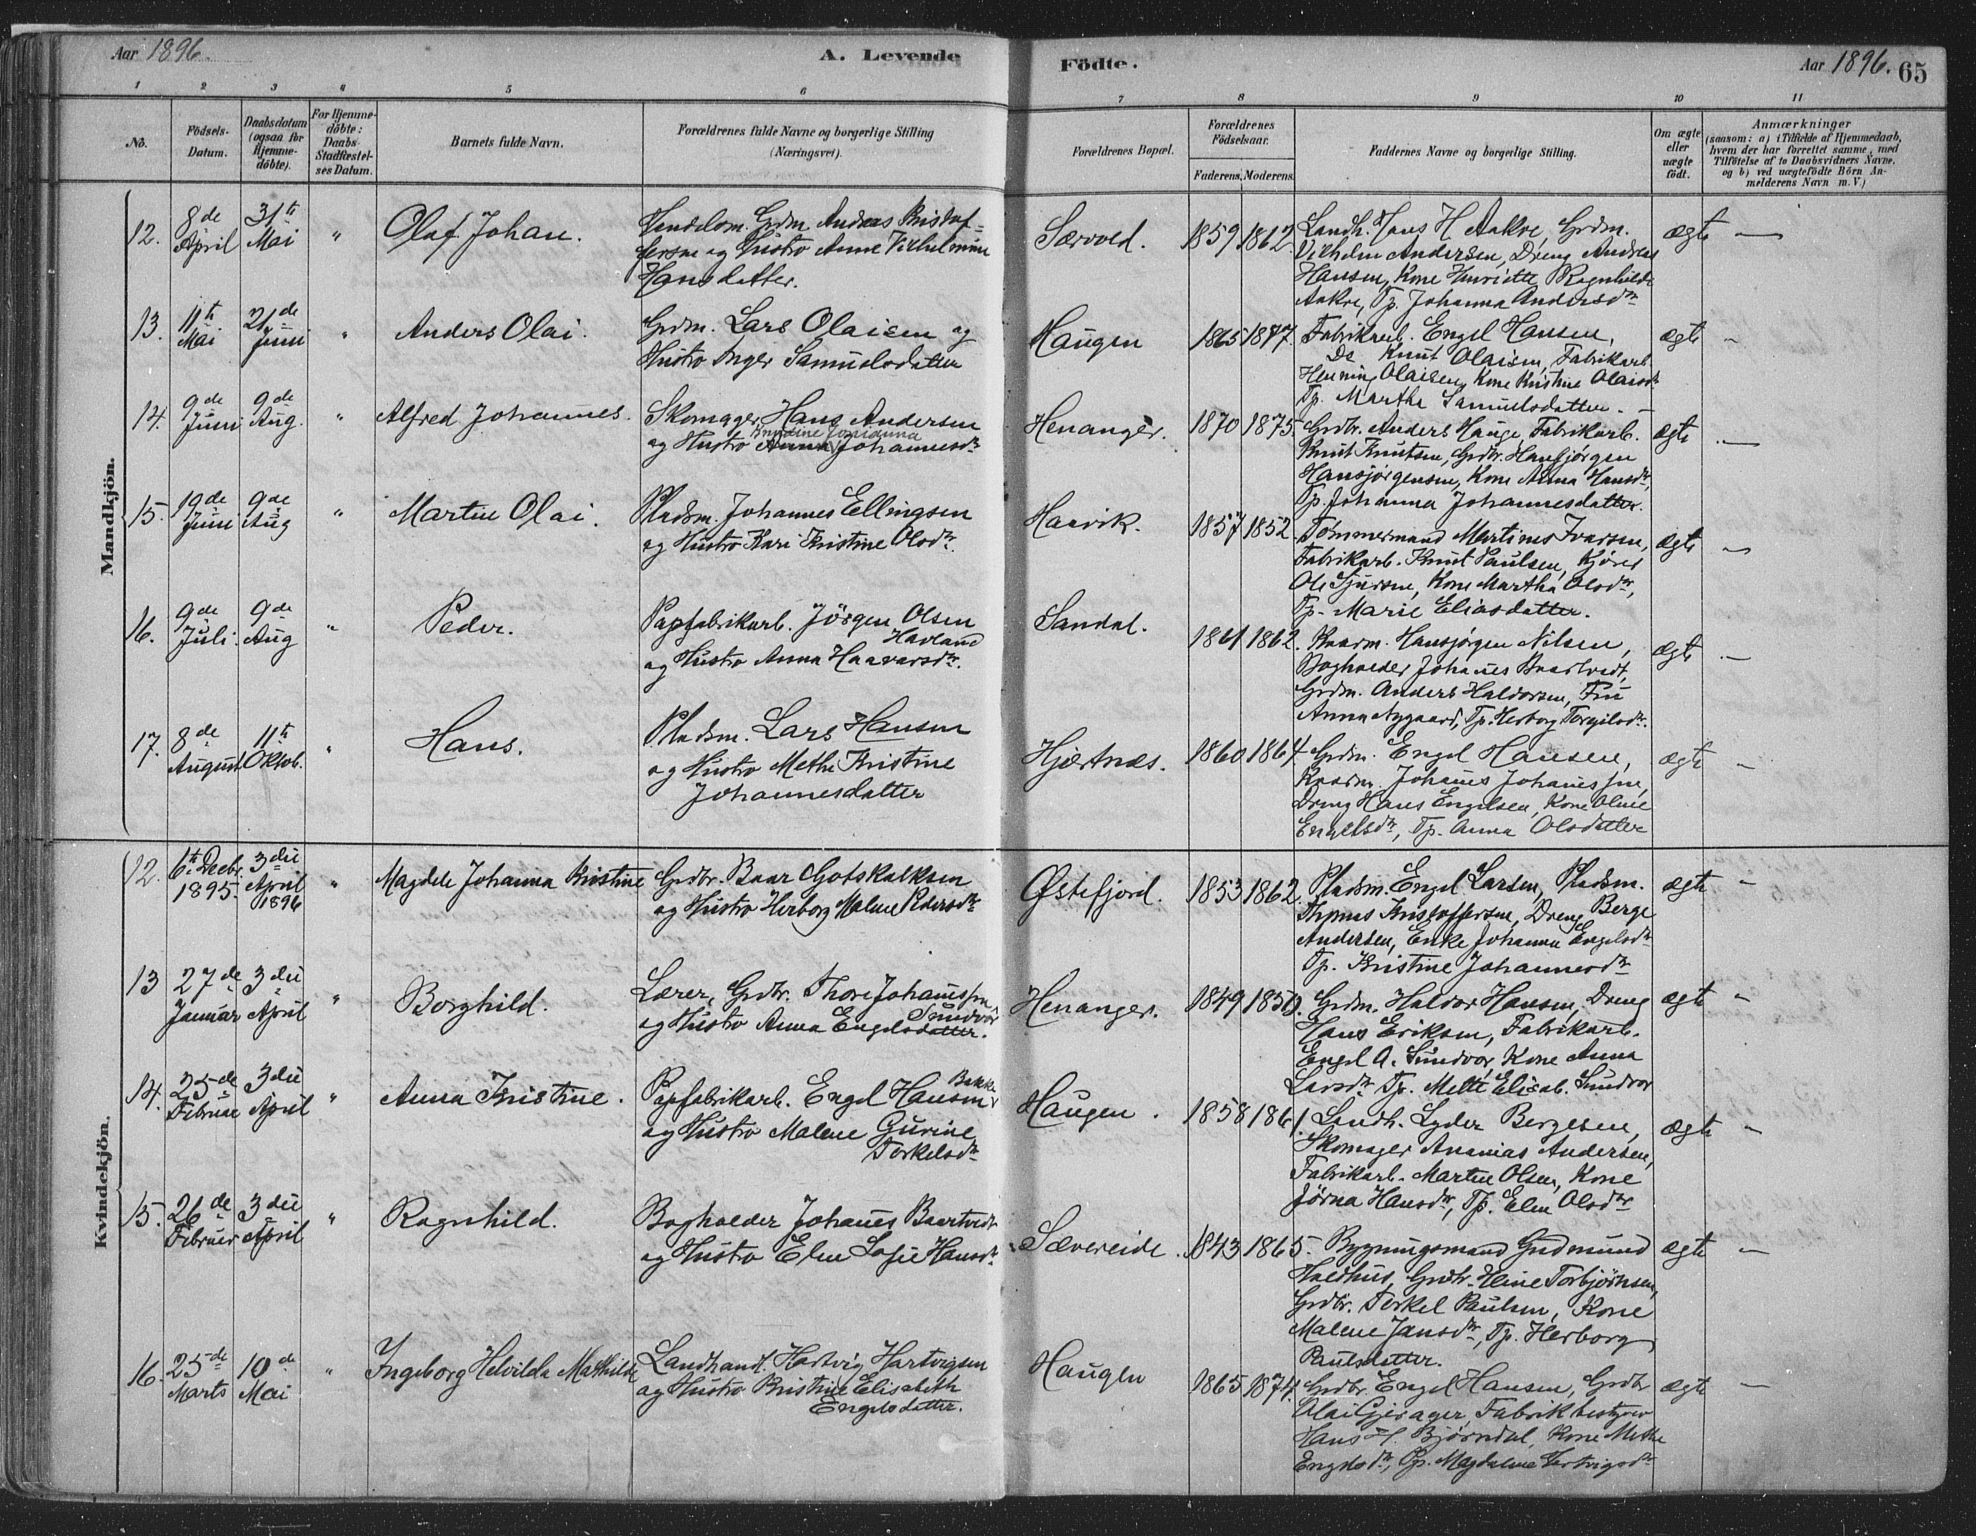 Aar 1896.
A. Levende
Födte.
Aar 1896. 65
1 2 3 4 5 6 7 8 9 10 11
No.
Födsels-
Datum.
Daabsdatum
(ogsaa for
Hjemme-
döbte).
For Hjemme-
döbte:
Daabs-
Stadfæstel-
ses Datum.
Barnets fulde Navn.
Forældrenes fulde Navne og borgerlige Stilling
(Næringsvei).
Forældrenes Bopæl.
Forældrenes
Födselsaar.
Faderens. Moderens.
Faddernes Navne og borgerlige Stilling.
Om ægte
eller
uægte
födt.
Anmærkninger
(saasom: a) i Tilfælde af Hjemmedaab,
hvem der har forrettet samme, med
Tilföielse af to Daabsvidners Navne.
og b) ved uægtefödte Börn An-
melderens Navn m. V.)
Mandkjön.
12.
8de
April
31te
Mai
"
Olaf Johan.
Grdm. Anders Kristof-
fersen og Hustro Anne Vilhelmine
Hansdatter.
Særvold.
1859 1862
Landh. Hans H Aakre, Grdm.
Vilhelm Andersen, Dreng Andreas
Hansen, Kone Henriette Ragnhilde
Aakre, Tp. Johanna Andersdtr
ægte —
13.
11te
Mai
21de
Juni
"
Anders Olai.
Grdm. Lars Olaisen og
Hustro Inger Samuelsdatter
Haugen
1865 1877.
Fabrikarb. Engel Hansen,
Do Knut Olaisen, Fabrikarb.
Henning Olaisen, Kone Kristine Olaisdtr
Tp. Martha Samuelsdatter. —
ægte —
14.
9de
Juni
9de
Aug.
"
Alfred Johannes.
Skomager Hans Andersen
og Hustro Anna Johannesdtr
Henanger.
1870 1875
Grdbr. Anders Hauge, Fabrikarb.
Knut Knutsen, Grdbr. Hansjørgen
Hansjørgensen, Kone Anna Hansdtr,
Tp. Johanna Johannesdatter.
ægte —
15.
19de
Juni
9de
Aug
"
Martin Olai.
Pladsm. Johannes Ellingsen
og Hustro Kari Kristine Olsdtr.
Haavik.
1857 1852
Tømmermand Martines Ivarsen,
Fabrikarb. Knut Paulsen, Kjører
Ole Sjursen, Kone Martha Olsdtr,
Tp. Marie Eliasdatter.
ægte —
16.
9de
Juli
9de
Aug
"
Peder.
Papfabrikarb. Jörgen Olsen
Havland
og Hustro Anna Haavarsdtr.
Sandal.
1861 1862.
Kaarm. Hansjørgen Nilsen,
Bogholder Johanes Baartvedt,
Grdm. Anders Haldorsen, Fru
Anna Nygaard, Tp. Herborg Torgilsdtr.
ægte —
17.
8de
August
11te
Oktob.
"
Hans.
Pladsm. Lars Hansen
og Hustro Methe Kristine
Johannesdatter
Hjertnæs.
1860 1864
Grdm. Engel Hansen,
Kaarm. Johanes Johanessen,
Dreng Hans Engelsen, Kone Oline
Engelsdtr, Tp. Anna Olsdatter
ægte —
Kvindekjön.
12.
6te Decbr.
1895.
3die
April
1896
"
Magdele Johanna Kristine
Grdbr. Baar Gotskalksen
og Hustro Herborg Malene Pedersdtr
Østefjord.
1853 1862.
Pladsm. Engel Larsen, Pladsm.
Thomas Kristoffersen, Dreng Berge
Andersen, Enke Johanna Engelsdtr
Tp. Kristine Johannesdtr
ægte —
13
27de
Januar
3die
April
"
Borghild.
Lærer, Grdbr. Thore Johanessen
Sundvor
og Hustro Anna Engelsdatter.
Henanger.
1849 1850.
Grdm. Haldor Hansen, Dreng
Hans Eriksen, Fabrikarb.
Engel A. Sundvor, Kone Anna
Larsdtr Tp. Mette Elisab. Sundvor
ægte —
14.
25de
Februar
3die
April
"
Anna Kristine.
Papfabrikarb. Engel Hansen
Bakke
og Hustro Malene Gurine
Torkelsdtr
Haugen.
1858 1861.
Landh. Lyder Bergesen,
Skomager Ananias Andersen,
Fabrikarb. Martin Olsen, Kone
Jørna Hansdtr, Tp. Elen Olsdtr
ægte —
15.
26de
Februar
3die
April
"
Ragnhild.
Bogholder Johanes Baartvedt
og Hustro Elen Sofie Hansdtr
Sævereide.
1843 1865.
Bygningsmand Gudmund
Holdhus, Grdbr. Heine Torbjørnsen,
Grdbr. Torkel Paulsen, Kone
Malene Jansdtr, Tp. Herborg
Paulsdatter.
ægte —
16.
25de
Marts
10de
Mai
"
Ingeborg Helvilda Mathilde
Landhandl. Hartvig Hartvigsen
og Hustro Kristine Elisabeth
Engelsdatter.
Haugen
1865 1874.
Grdbr. Engel Hansen, Grdbr
Olai Gjerager, Fabrikbestyrer
Hans H. Bjørndal, Kone Methe
Engelsdtr, Tp. Magdalene Hartvigsdtr
ægte —